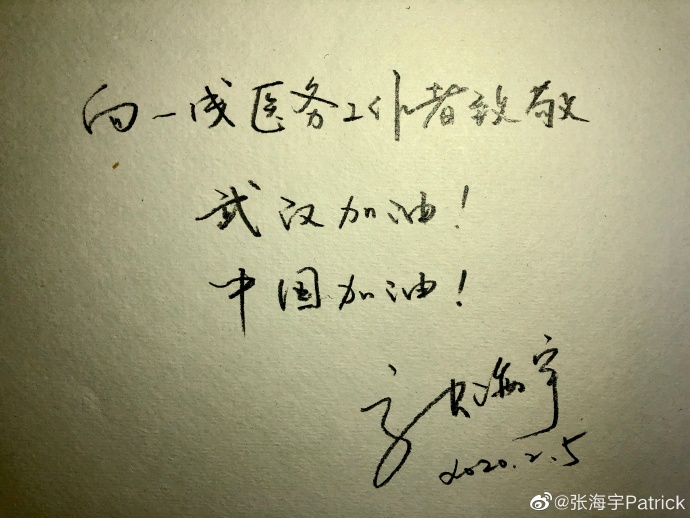 向一线医务工作者致敬
武汉加油!
中国加油!
张海宇
2020.2.5
@张海宇Patrick